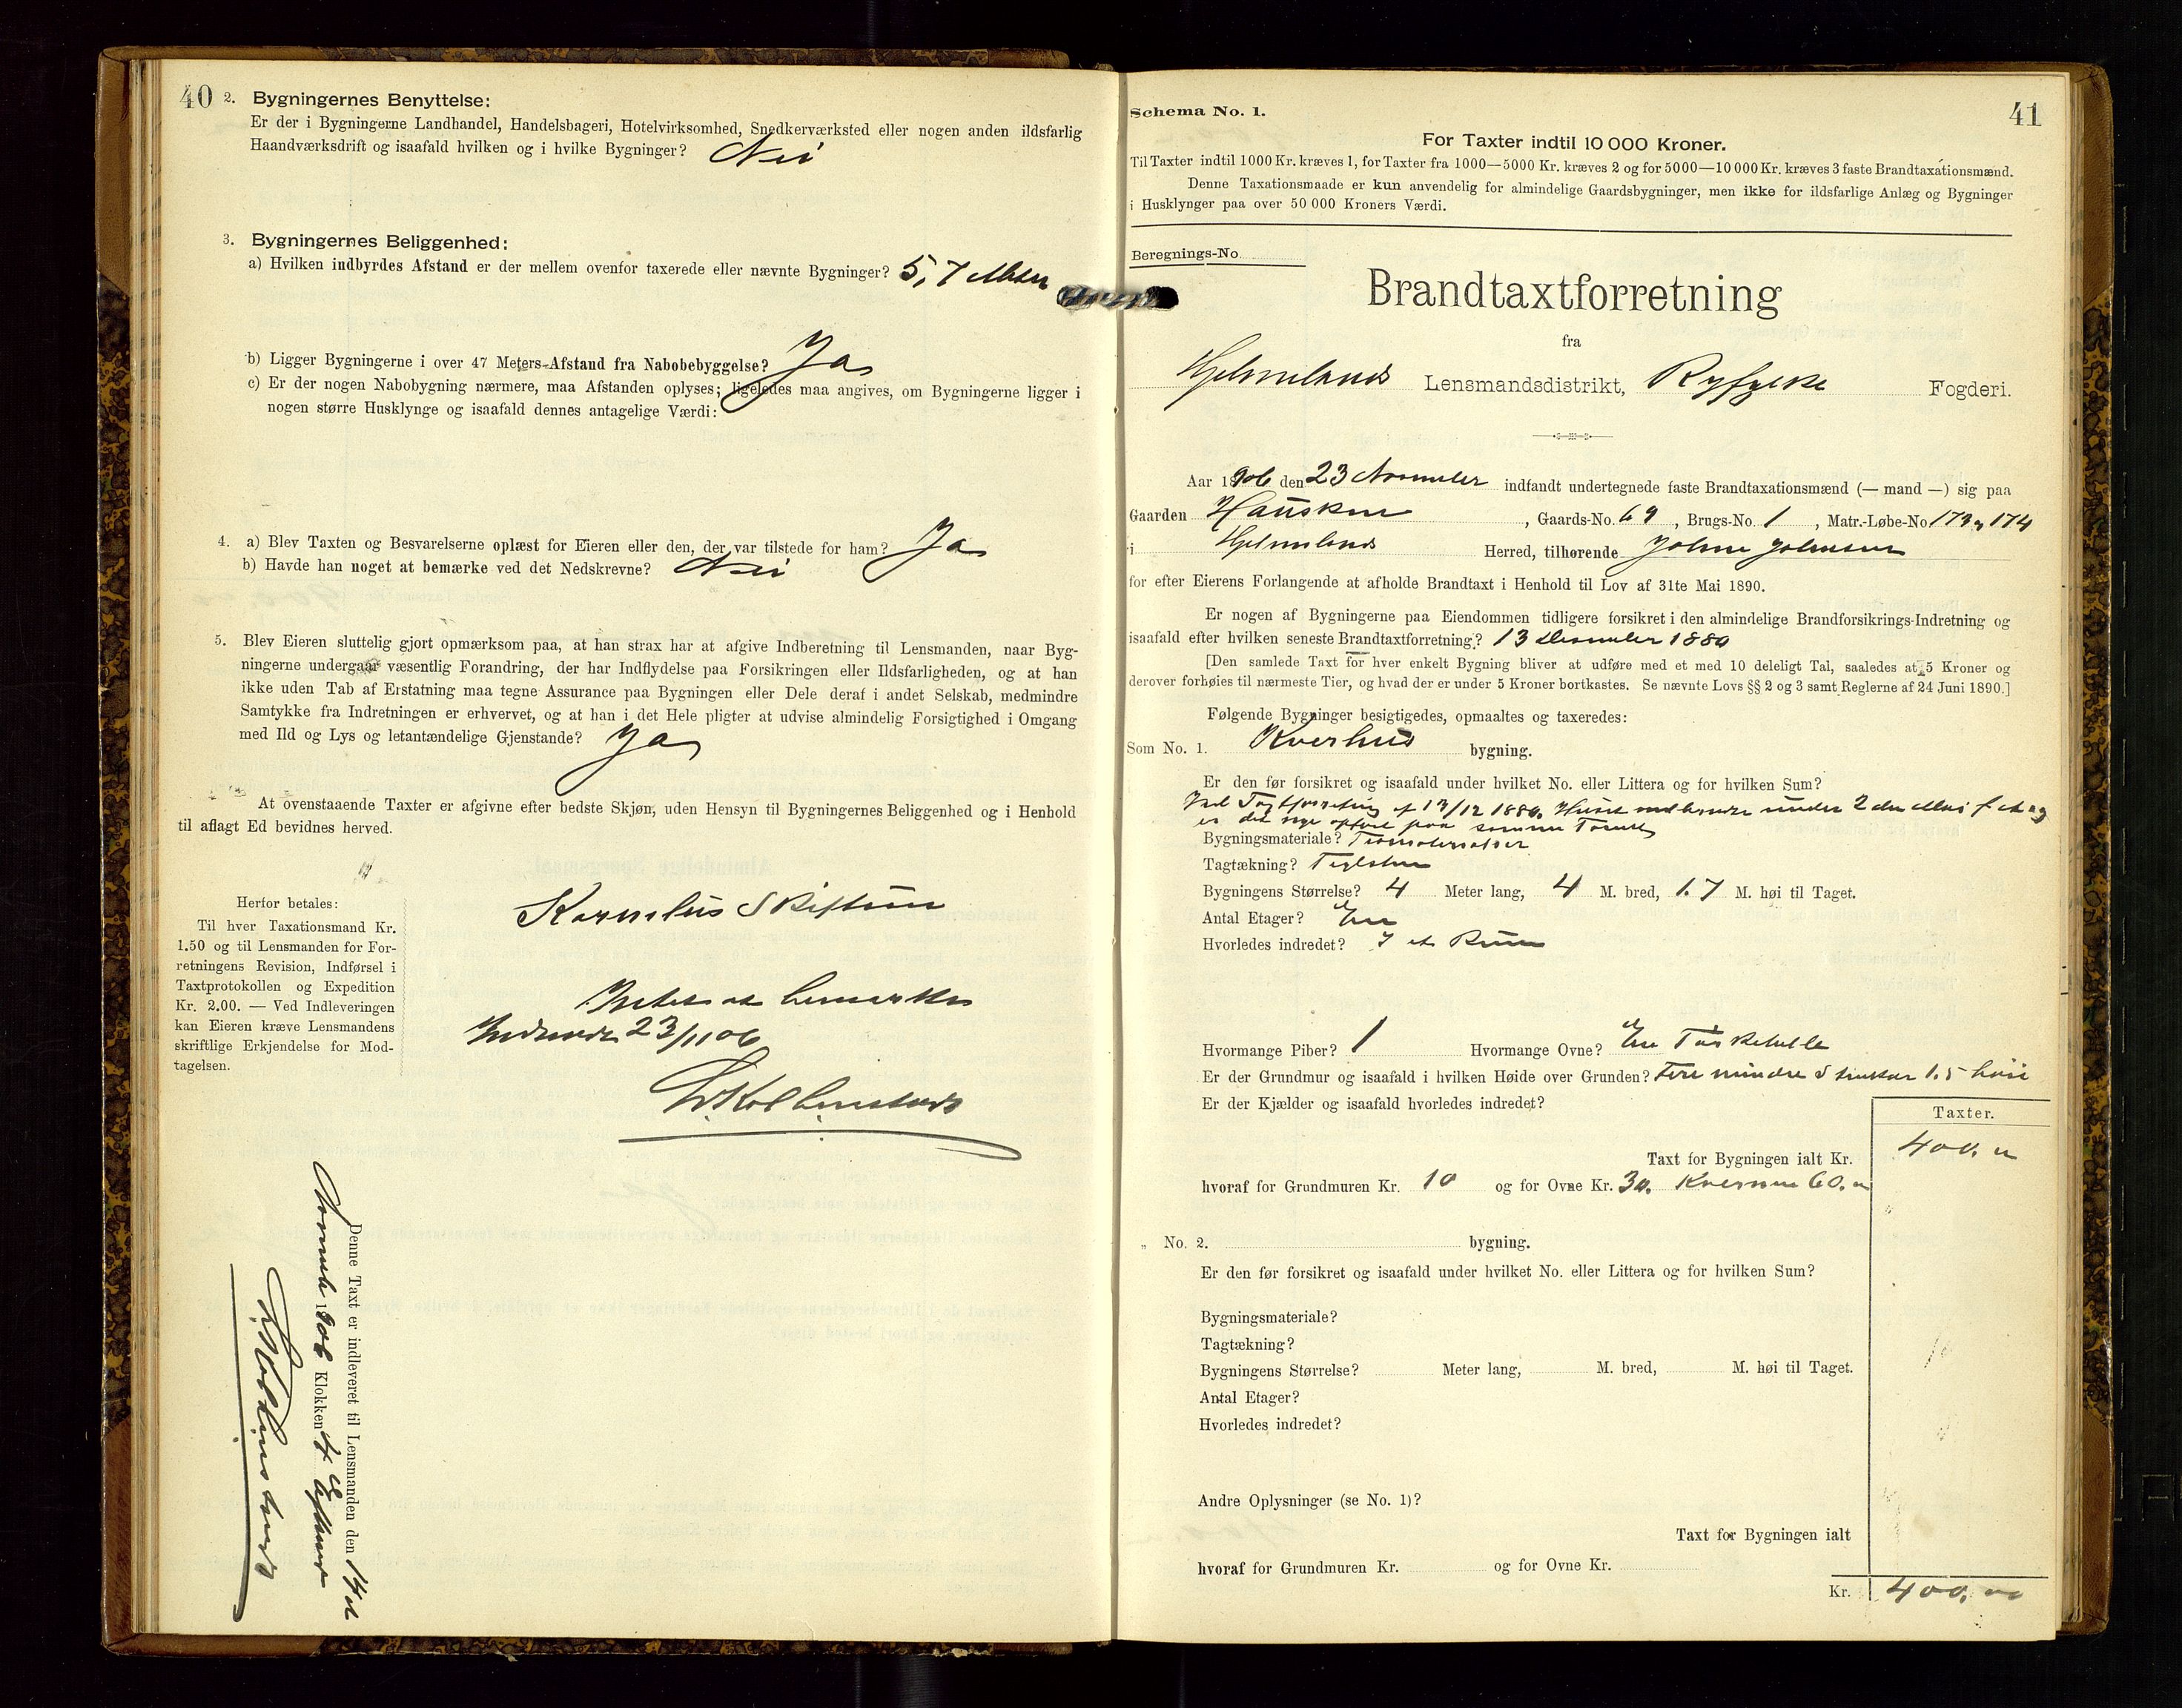 40
2. Bygningernes Benyttelse:
Er der i Bygningerne Landhandel, Handelsbageri, Hotelvirksomhed, Snedkerværksted eller nogen anden ildsfarlig
Haandværksdrift og isaafald hvilken og i hvilke Bygninger? Nei
3. Bygningernes Beliggenhed:
a) Hvilken indbyrdes Afstand er der mellem ovenfor taxerede eller nævnte Bygninger? 5,7 Meter
b) Ligger Bygningerne i over 47 Meters Afstand fra Nabobebyggelse? Ja
c) Er der nogen Nabobygning nærmere, maa Afstanden oplyses; ligeledes maa angives, om Bygningerne ligger i
nogen større Husklynge og isaafald dennes antagelige Værdi:
4. a) Blev Taxten og Besvarelserne oplæst for Eieren eller den, der var tilstede for ham? Ja
b) Havde han noget at bemærke ved det Nedskrevne? Nei
5. Blev Eieren sluttelig gjort opmærksom paa, at han strax har at afgive Indberetning til Lensmanden, naar Byg-
ningerne undergaar væsentlig Forandring, der har Indflydelse paa Forsikringen eller Ildsfarligheden, og at han
ikke uden Tab af Erstatning maa tegne Assurance paa Bygningen eller Dele deraf i andet Selskab, medmindre
Samtykke fra Indretningen er erhvervet, og at han i det Hele pligter at udvise almindelig Forsigtighed i Omgang
med Ild og Lys og letantændelige Gjenstande? Ja
At ovenstaaende Taxter er afgivne efter bedste Skjøn, uden Hensyn til Bygningernes Beliggenhed og i Henhold
til aflagt Ed bevidnes herved.
Herfor betales:
Til hver Taxationsmand Kr.
1.50 og til Lensmanden for For-
retningens Revision, Indførsel i
Taxtprotokollen og Expedition
Kr. 2.00. — Ved Indleveringen
kan Eieren kræve Lensmandens
skriftlige Erkjendelse for Mod-
tagelsen.
Kornelius Skiftun
Intet at bemærke
23/11 06
Kolbenstvedt
Denne Taxt er indleveret til Lensmanden den 14de
November 1906 Klokken 4 Efterm
Kolbenstvedt
41
Schema No. 1.
For Taxter indtil 10 000 Kroner.
Til Taxter indtil 1000 Kr. kræves 1, for Taxter fra 1000—5000 Kr. kræves 2 og for 5000—10 000 Kr. kræves 3 faste Brandtaxationsmænd.
Denne Taxationsmaade er kun anvendelig for almindelige Gaardsbygninger, men ikke for ildsfarlige Anlæg og Bygninger
i Husklynger paa over 50 000 Kroners Værdi.
Beregnings-No
Brandtaxtforretning
fra
Hjelmelands Lensmandsdistrikt, Ryfylke Fogderi.
Aar 1906 den 23 November indfandt undertegnede faste Brandtaxationsmænd (— mand —) sig paa
Gaarden Hausken, Gaards-No. 69, Brugs-No. 1, Matr.-Løbe-No 173 & 174
i Hjelmelands Herred, tilhørende Johne Johnsen
for efter Eierens Forlangende at afholde Brandtaxt i Henhold til Lov af 31te Mai 1890.
Er nogen af Bygningerne paa Eiendommen tidligere forsikret i den almindelige Brandforsikrings-Indretning og
isaafald efter hvilken seneste Brandtaxtforretning? 13 Desember 1880
[Den samlede Taxt for hver enkelt Bygning bliver at udføre med et med 10 deleligt Tal, saaledes at 5 Kroner og
derover forhøies til nærmeste Tier, og hvad der er under 5 Kroner bortkastes. Se nævnte Lovs §§ 2 og 3 samt Reglerne af 24 Juni 1890.]
Følgende Bygninger besigtigedes, opmaaltes og taxeredes:
Som No. 1. Kvernhus bygning.
Er den før forsikret og isaafald under hvilket No. eller Littera og for hvilken Sum?
Ved Taxtforretning af 13/12 1880. Huset nedbrændte under 2den Mai f. A. og
er det nye opført paa samme Tomt
Bygningsmateriale? Træmaterialier
Tagtækning? Teglsten
Bygningens Størrelse? 4 Meter lang, 4 M. bred, 1.7 M. høi til Taget.
Antal Etager? En
Hvorledes indredet? I et Rum
Hvormange Piber? 1 Hvormange Ovne? En Tørkehelle
Er der Grundmur og isaafald i hvilken Høide over Grunden? Fire mindre Struktur 1.5 høie
Er der Kjælder og isaafald hvorledes indredet?
Taxter.
Taxt for Bygningen ialt Kr. 400.00
hvoraf for Grundmuren Kr. 10 og for Ovne Kr. 30. Kvernen 60.00
„ No. 2. bygning.
Er den før forsikret og isaafald under hvilket No. eller Littera og for hvilken Sum?
Bygningsmateriale?
Tagtækning?
Bygningens Størrelse? Meter lang, M. bred, M. høi til Taget.
Antal Etager?
Hvorledes indredet?
Andre Oplysninger (se No. 1)?
Taxt for Bygningen ialt
hvoraf for Grundmuren Kr. og for Ovne Kr.
Kr. 400.00